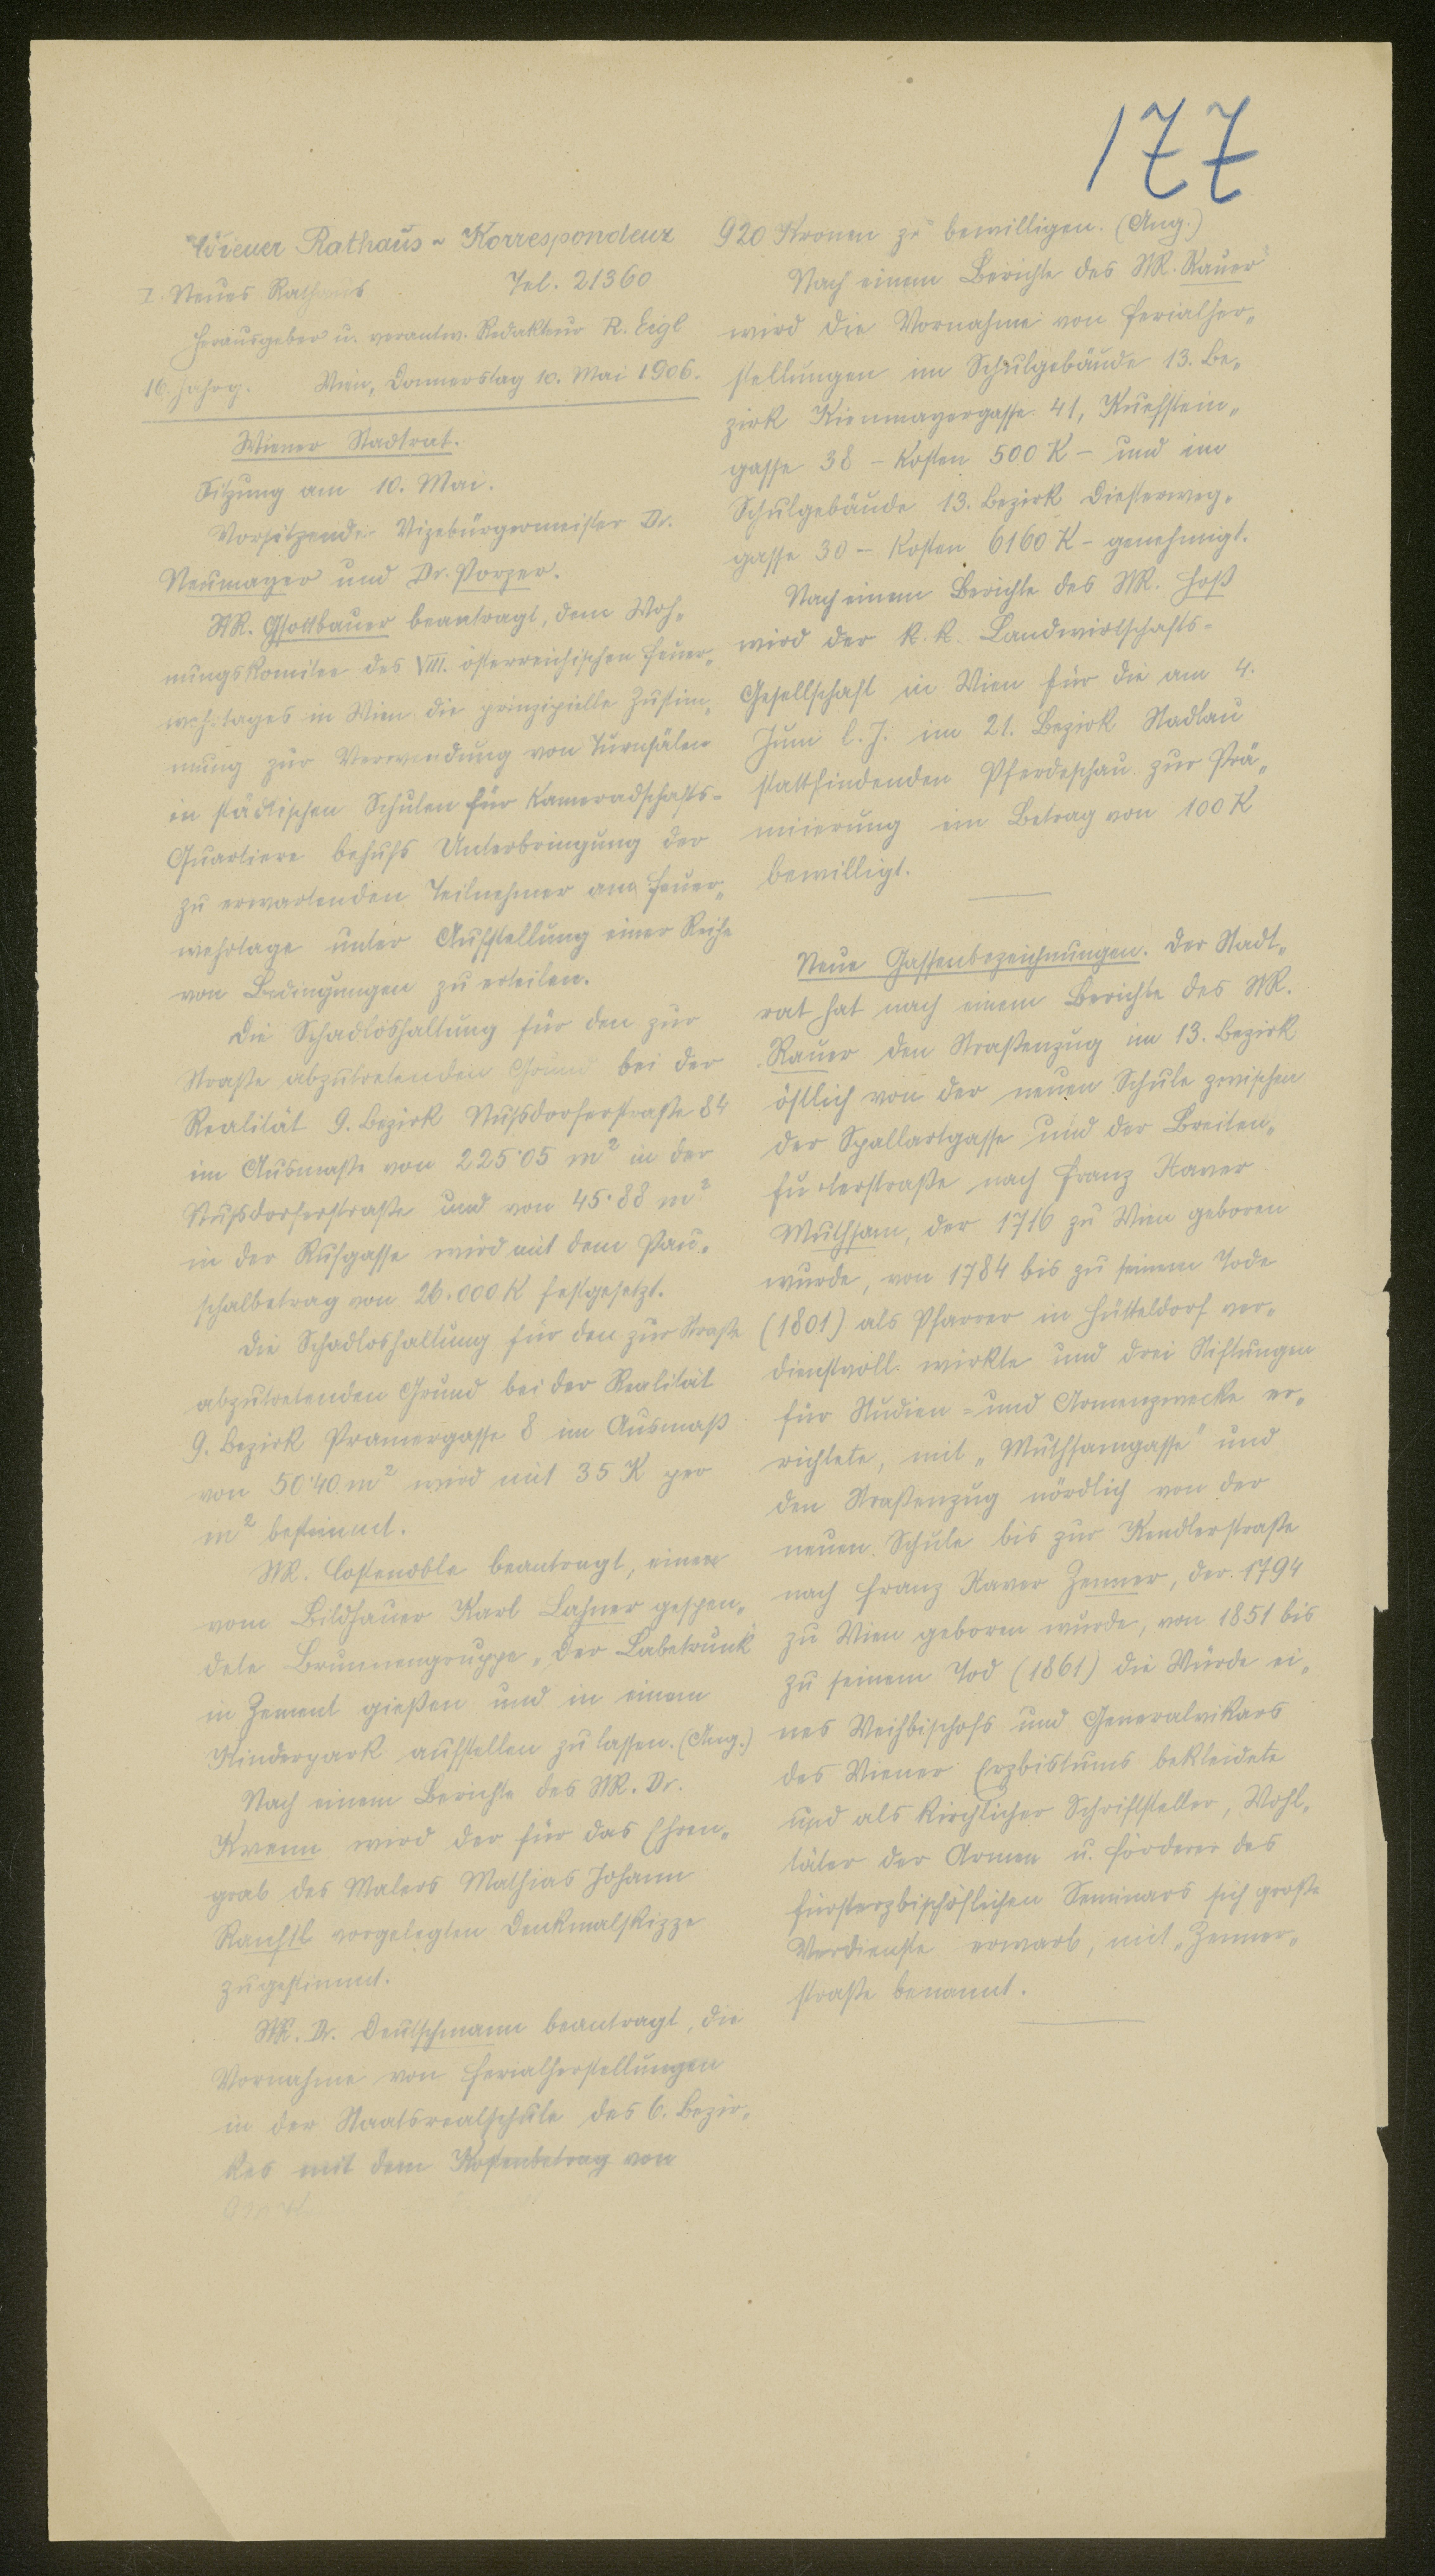 177
Wiener Rathaus-Korrespondenz
I. Neues Rathaus Tel. 21360
Herausgeber u. verantw. Redakteur R. Eigl
16. Jahrg. Wien, Donnerstag 10. Mai 1906.
Wiener Stadtrat.
Sitzung am 10. Mai.
Vorsitzende: Vizebürgermeister Dr.
Neumayer und Dr. Porzer.
StR. Gsottbauer beantragt, dem Woh-
nungskomitee des VIII. österreichischen Feuer-
wehrtages in Wien die prinzipielle Zustim-
mung zur Verwendung von Turnsälen
in städtischen Schulen für Kameradschafts-
Quartiere behufs Unterbringung der
zu erwartenden Teilnehmer am Feuer-
wehrtage unter Aufstellung einer Reihe
von Bedingungen zu erteilen.
Die Schadloshaltung für den zur
Straße abzutretenden Grund bei der
Realität 9. Bezirk Nußdorferstraße 84
im Ausmaße von 225·05 m² in der
Nußdorferstraße und von 45·88 m²
in der Rufgasse wird mit dem Pau-
schalbetrag von 26.000 K festgesetzt.
Die Schadloshaltung für den zur Straße
abzutretenden Grund bei der Realität
9. Bezirk Pramergasse 8 im Ausmaß
von 50·40 m² wird mit 35 K per
m² bestimmt.
StR. Costenoble beantragt, einen
vom Bildhauer Karl Lahner gespen-
dete Brunnengruppe „Der Labetrunk"
in Zement gießen und in einem
Kinderpark aufstellen zu lassen. (Ang.)
Nach einem Berichte des StR. Dr.
Krenn wird der für das Ehren-
grab des Malers Mathias Johann
Ranftl vorgelegten Denkmalskizze
zugestimmt.
StR. Dr. Deutschmann beantragt, die
Vornahme von Ferialherstellungen
in der Staatsrealschule des 6. Bezir-
kes mit dem Kostenbetrag von
920 Kronen zu bewilligen. (Ang.)
Nach einem Berichte des StR. Rauer
wird die Vornahme von Ferialher-
stellungen im Schulgebäude 13. Be-
zirk Kienmayergasse 41, Kuefstein-
gasse 38 – Kosten 500 K – und im
Schulgebäude 13. Bezirk Diesterweg-
gasse 30 – Kosten 6160 K – genehmigt.
Nach einem Berichte des StR. Hoß
wird der k. k. Landwirtschafts-
Gesellschaft in Wien für die am 4.
Juni l. J. im 21. Bezirk Stadlau
stattfindenden Pferdeschau zur Prä-
miierung ein Betrag von 100 K
bewilligt.
Neue Gassenbezeichnungen. Der Stadt-
rat hat nach einem Berichte des StR.
Rauer den Straßenzug im 13. Bezirk
östlich von der neuen Schule zwischen
der Spallartgasse und der Breiten-
furterstraße nach Franz Xaver
Muthsam, der 1716 zu Wien geboren
wurde, von 1784 bis zu seinem Tode
(1801) als Pfarrer in Hütteldorf ver-
dienstvoll wirkte und drei Stiftungen
für Studien- und Armenzwecke er-
richtete, mit „Muthsamgasse" und
den Straßenzug nördlich von der
neuen Schule bis zur Kendlerstraße
nach Franz Xaver Zenner, der 1794
zu Wien geboren wurde, von 1851 bis
zu seinem Tod (1861) die Würde ei-
nes Weihbischofs und Generalvikars
des Wiener Erzbistums bekleidete
und als kirchlicher Schriftsteller, Wohl-
täter der Armen u. Förderer des
fürsterzbischöflichen Seminars sich große
Verdienste erwarb, mit „Zenner-
straße benannt.